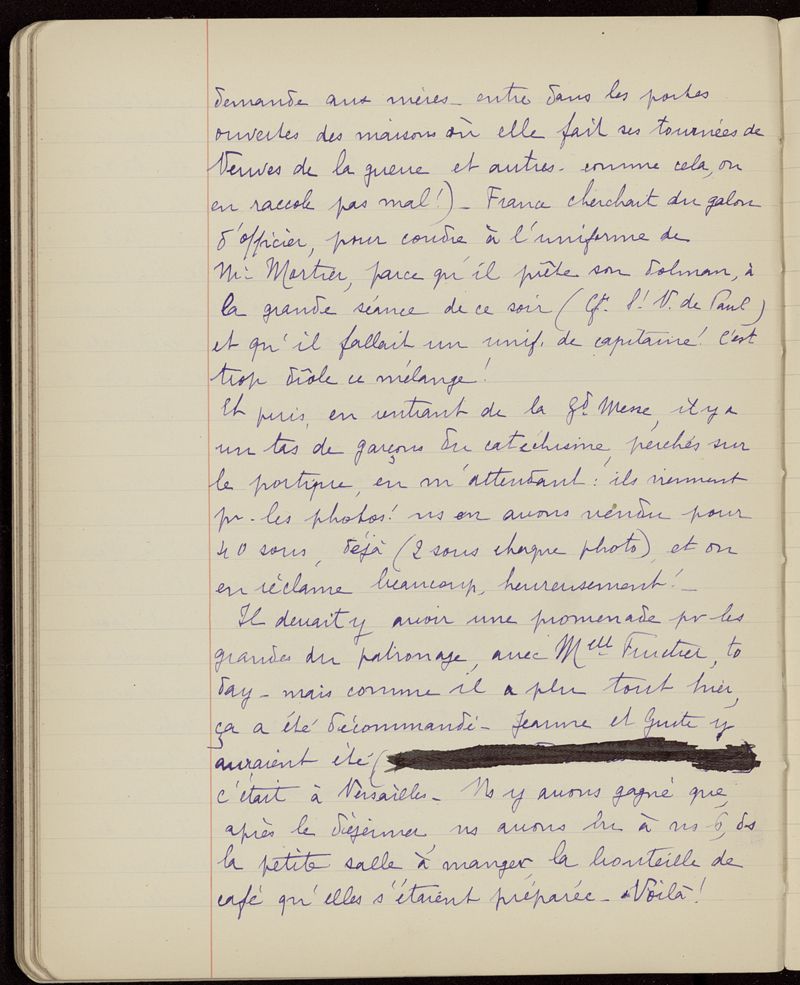 demande aux mères - entre dans les portes
ouvertes des maisons où elle fait ses tournées de
Veuves de la guerre et autres - comme cela, on
en raccole pas mal!) - France cherchait du galon
d'officier, pour coudre à l'uniforme de
Mr Mortier, parce qu'il prête son dolman, à
la grande séance de ce soir (Cf. St V. de Paul)
et qu'il fallait un unif. de capitaine! C'est
trop drôle ce mélange!
Et puis, en rentrant de la Gd Messe, il y a
un tas de garçons du catéchisme, perchés sur
le portique, en m'attendant! ils viennent
pr - les photos! ns en avons vendu pour
40 sous, déjà (2 sous chaque photo), et on
en réclame beaucoup, heureusement! -
Il devait y avoir une promenade pr les
grandes du patronage, avec Melle, to
day - mais comme il a plu tout hier,
ça a été décommandé - Jeanne et Guite y
auraient été (
c'était à Versailles - Ns y avons gagné que
après le déjeuner, ns avons bu à ns 6, ds
la petite salle à manger, la bouteille de
café qu'elles s'étaient préparée - Voilà!